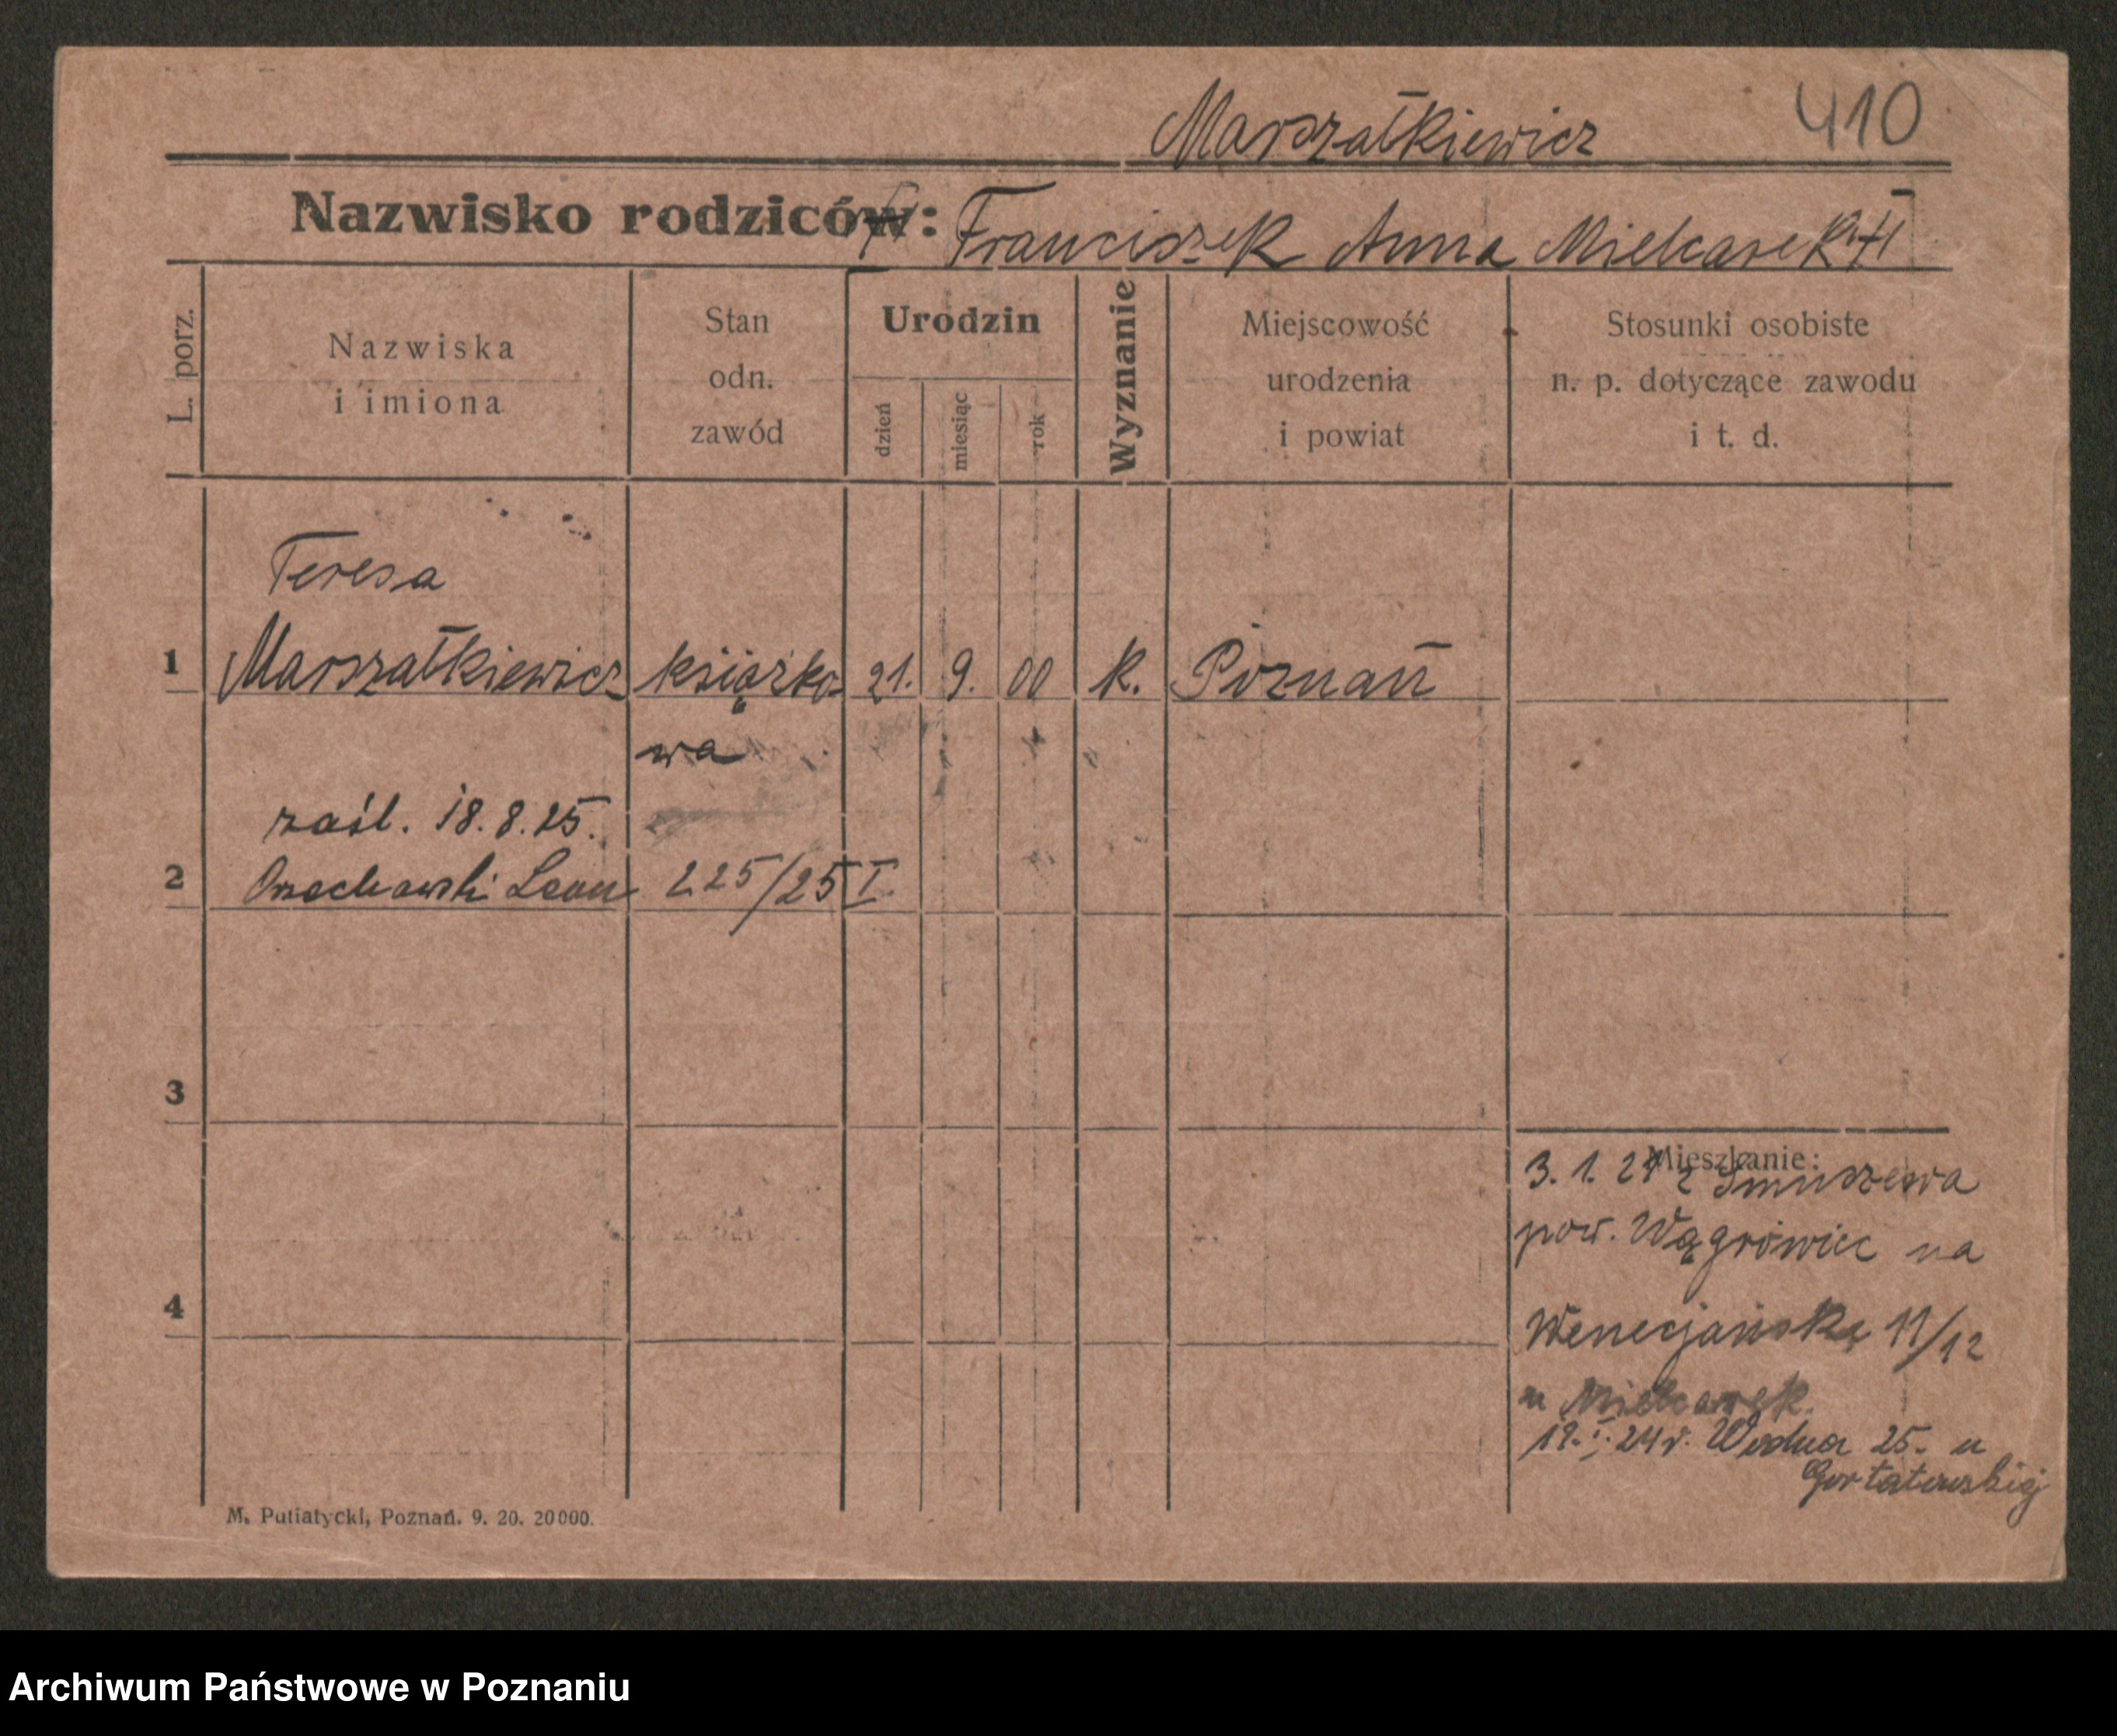 Marszałkiewicz 410
Nazwisko rodziców: Franciszek Anna Mielcarek
L. porz.
Nazwiska
i imiona
Stan
odn.
zawód
Urodzin
dzień
miesiąc
rok
Wyznanie
Miejscowość
urodzenia
i powiat
Stosunki osobiste
n. p. dotyczące zawodu
i t. d.
Teresa
1 Marszałkiewicz książko- 21. 9. 00 k. Poznań
wa
zaśl. 18.8.25.
2 Orzechowski Leon 225/25 I.
3
Mieszkanie:
3. 1. 21 z Smuszewa
pow. Wągrówiec na
4
Wenecjańską 11/12
u Mielcarek.
19. I. 24 r. Wodna 25. u
Gortatowskiej
M. Putiatycki, Poznań. 9. 20. 20000.
Archiwum Państwowe w Poznaniu